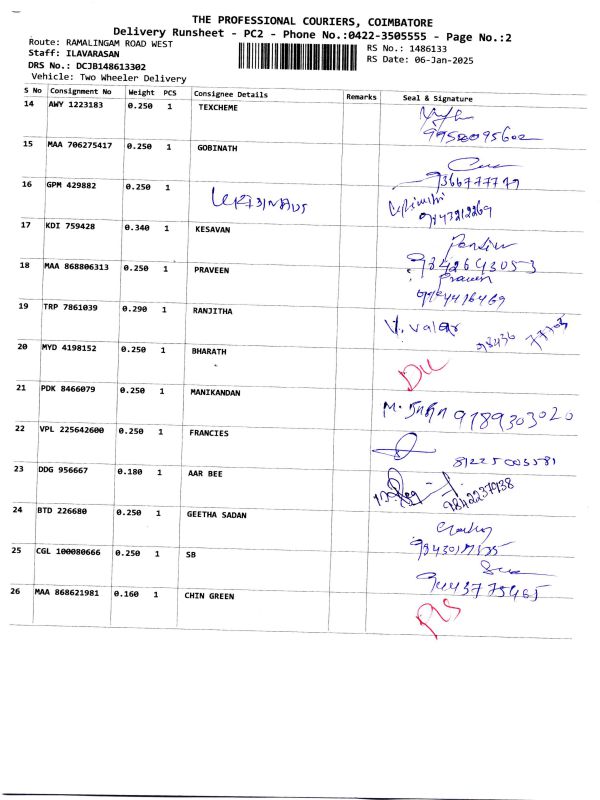 THE PROFESSIONAL COURIERS, COIMBATORE
Delivery Runsheet - PC2 - Phone No.:0422-3505555 - Page No.:2
Route: RAMALINGAM ROAD WEST
RS No.: 1486133
Staff: ILAVARASAN
RS Date: 06-Jan-2025
DRS No.: DCJB148613302
Vehicle: Two Wheeler Delivery
S No Consignment No Weight PCS Consignee Details Remarks Seal & Signature
14 AWY 1223183 0.250 1 TEXCHEME
9950095602
15 MAA 706275417 0.250 1 GOBINATH
9366777779
16 GPM 429882 0.250 1
9843212269
17 KDI 759428 0.340 1 KESAVAN
9842643053
18 MAA 868806313 0.250 1 PRAVEEN
Praveen
19 TRP 7861039 0.290 1 RANJITHA
V. valar 98436 77703
20 MYD 4198152 0.250 1 BHARATH
21 PDK 8466079 0.250 1 MANIKANDAN
9789303020
22 VPL 225642600 0.250 1 FRANCIES
81225 005581
23 DDG 956667 0.180 1 AAR BEE
9842237938
24 BTD 226680 0.250 1 GEETHA SADAN
25 CGL 100080666 0.250 1 SB
9443775465
26 MAA 868621981 0.160 1 CHIN GREEN